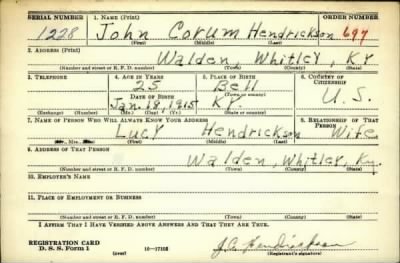 SERIAL NUMBER 1. NAME (Print) ORDER NUMBER
1228 John Corum Hendrickson 697
(First) (Middle) (Last)
2. ADDRESS (Print)
Walden, Whitley, Ky
(Number and street or R. F. D. number) (Town) (County) (State)
3. TELEPHONE 4. AGE IN YEARS 5. PLACE OF BIRTH 6. COUNTRY OF CITIZENSHIP
25 Bell
DATE OF BIRTH (Town or county)
Jan. 18, 1915 Ky. U. S.
(Exchange) (Number) (Mo.) (Day) (Yr.) (State or country)
7. NAME OF PERSON WHO WILL ALWAYS KNOW YOUR ADDRESS 8. RELATIONSHIP OF THAT PERSON
Lucy Hendrickson Wife
(First) (Middle) (Last)
9. ADDRESS OF THAT PERSON
Walden, Whitley, Ky.
(Number and street or R. F. D. number) (Town) (County) (State)
10. EMPLOYER'S NAME
11. PLACE OF EMPLOYMENT OR BUSINESS
(Number and street or R. F. D. number) (Town) (County) (State)
I AFFIRM THAT I HAVE VERIFIED ABOVE ANSWERS AND THAT THEY ARE TRUE.
REGISTRATION CARD
D. S. S. Form 1 (over) 16—17105 J.C. Hendrickson
(Registrant's signature)